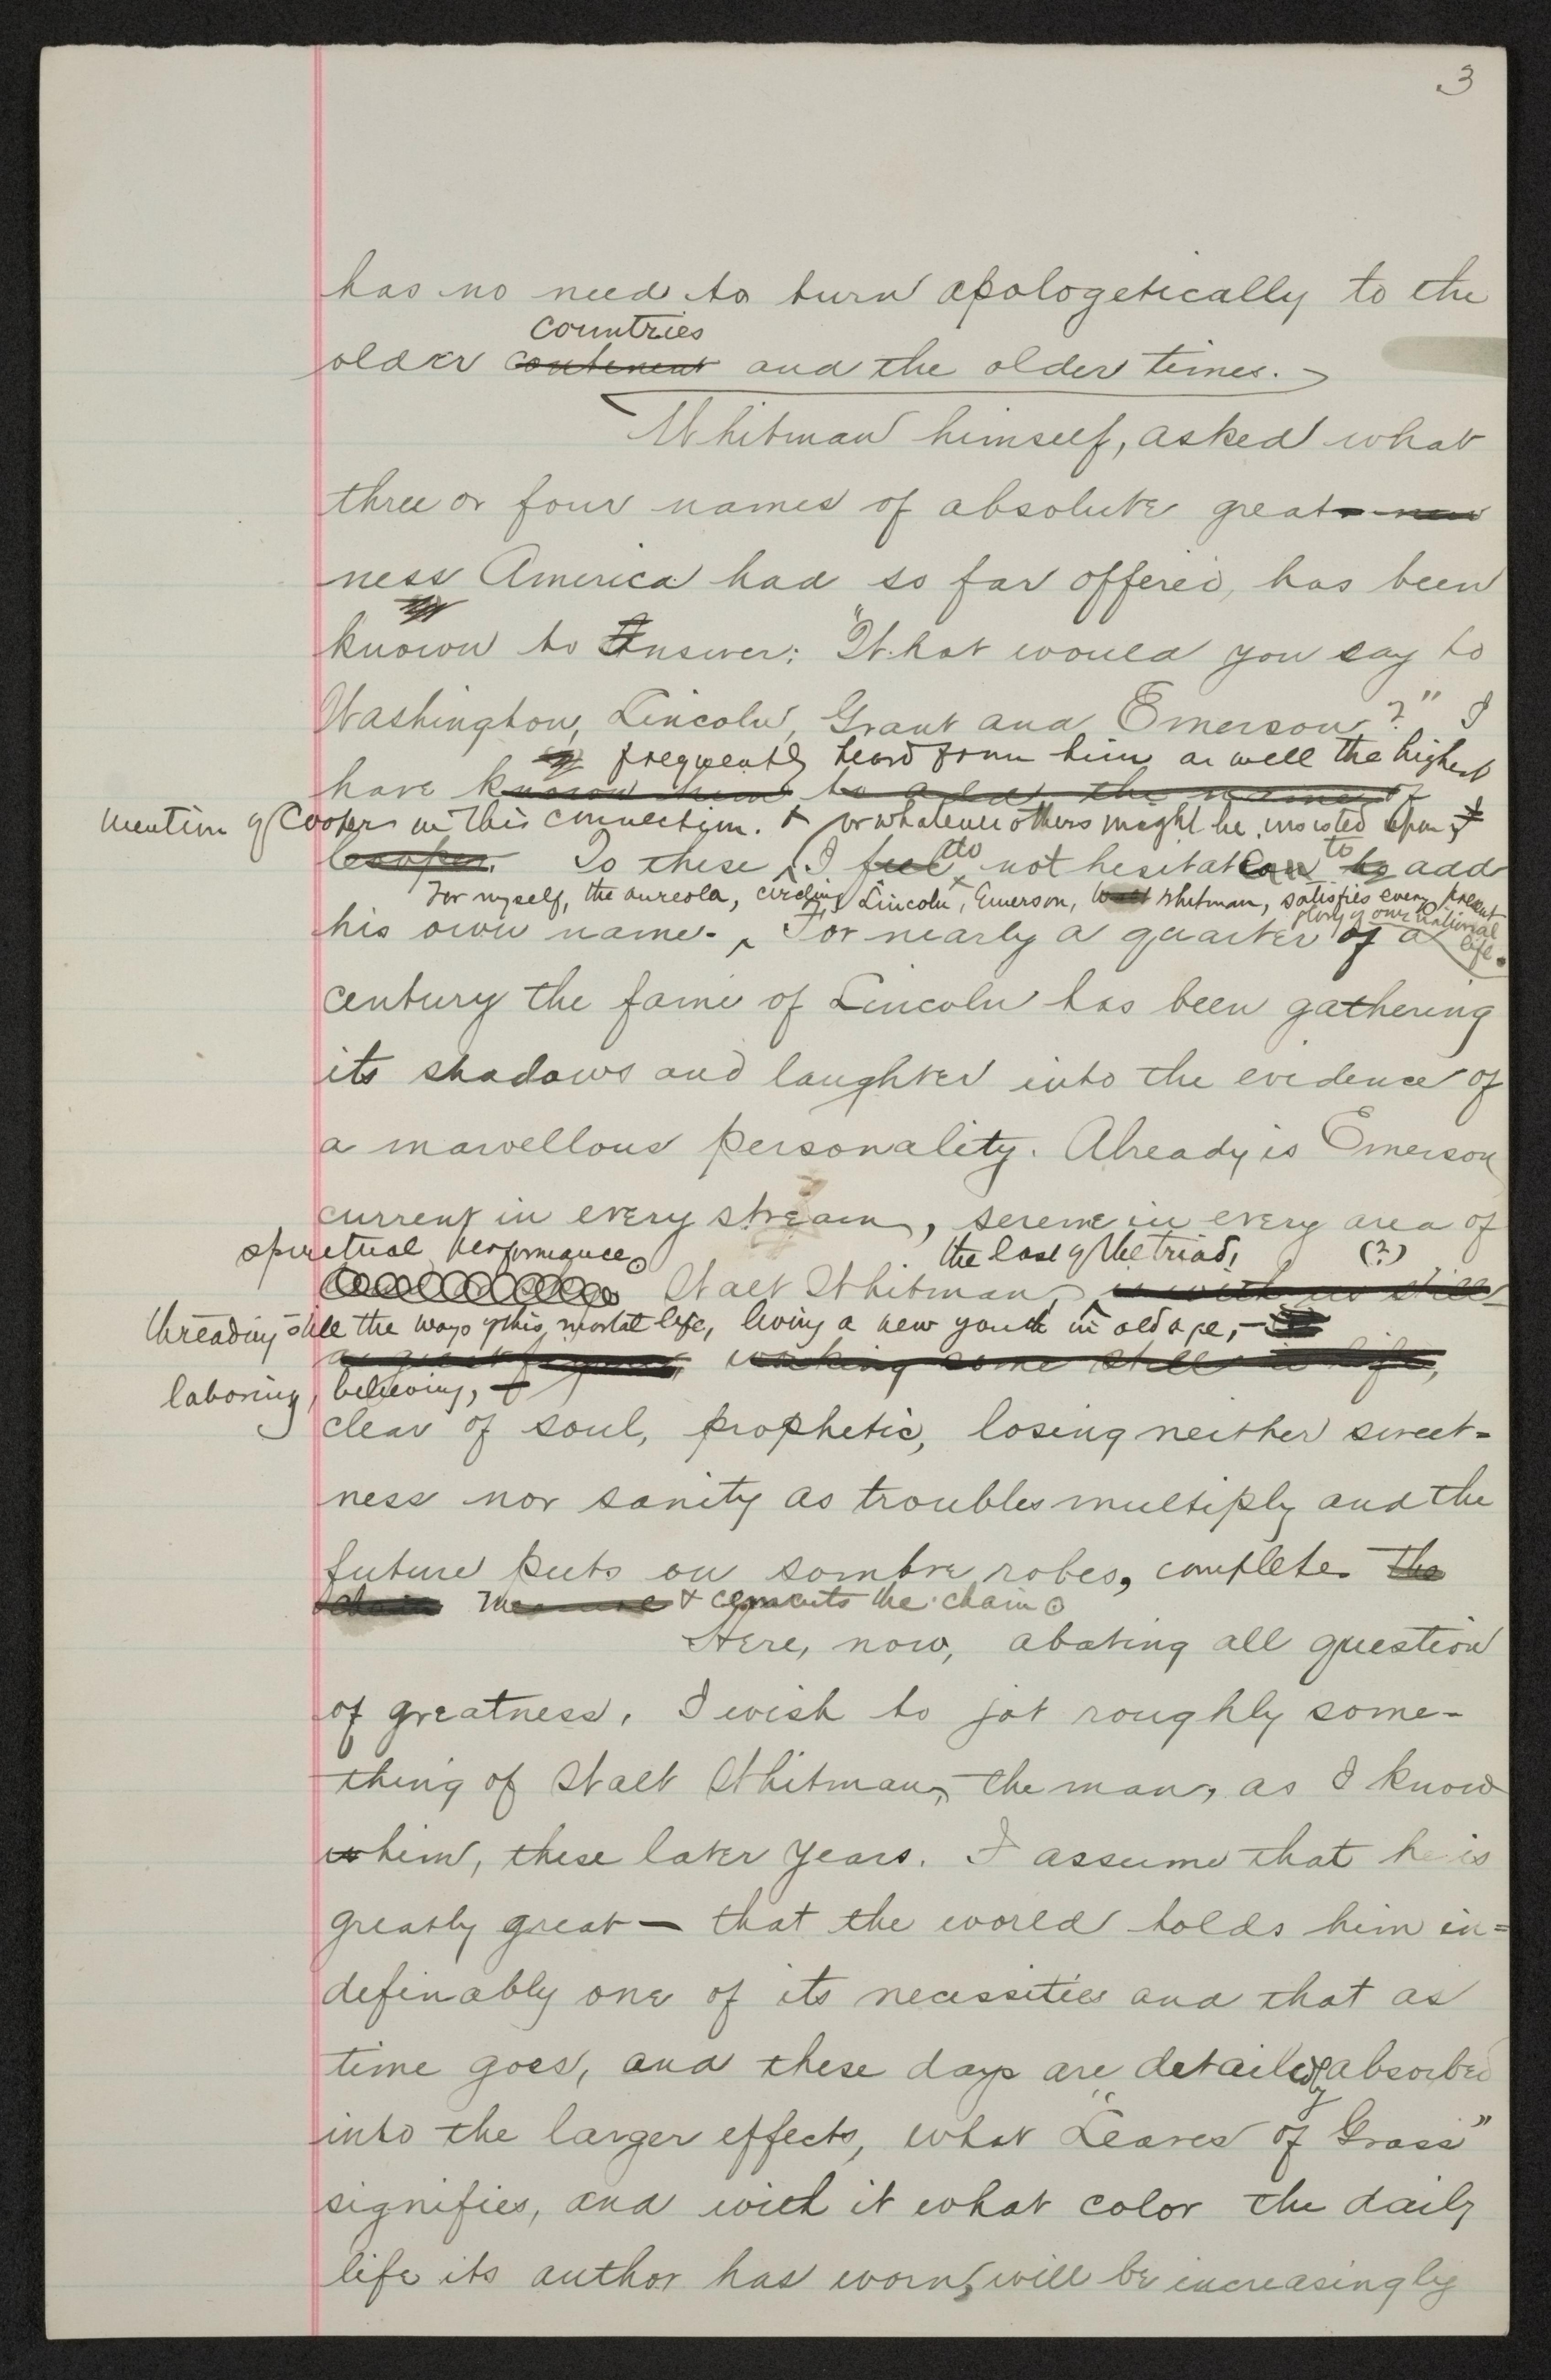 3
has no need to turn apologetically to the
countries
older continent and the older times.
Whitman himself, asked what
three or four names of absolute great-
ness America had so far offered, has been
known to answer: "What would you say to
Washington, Lincoln, Grant and Emerson?" I
frequently heard from him as well the highest
have known him to add the name of
mention of Cooper in this connection. & or whatever others might be insisted upon,
Cooper. To these, I feel do not hesitate to to add
For myself, the aureola, circling Lincoln, Emerson, Walt Whitman, satisfies every present
glory of our national
life.
his own name. For nearly a quarter of a
century the fame of Lincoln has been gathering
its shadows and laughter into the evidence of
a marvellous personality. Already is Emerson
current in every stream, serene in every area of
spiritual performance.
the last of the triad, (?)
Walt Whitman, is with us still
threading still the ways of this mortal life, living a new youth in old age, –
walking some still in life,
laboring, believing,
clear of soul, prophetic, losing neither sweet-
ness nor sanity as troubles multiply and the
future puts on sombre robes, completes the
chain & cements the chain.
Here, now, abating all question
of greatness, I wish to jot roughly some-
thing of Walt Whitman, the man, as I know
him, these later years. I assume that he is
greatly great — that the world holds him in-
definably one of its necessities and that as
time goes, and these days are detailedly absorbed
into the larger effects, what "Leaves of Grass"
signifies, and with it what color the daily
life its author has worn, will be increasingly